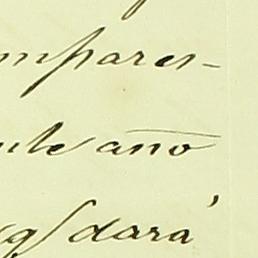 mpares-
nte año
q.e dará